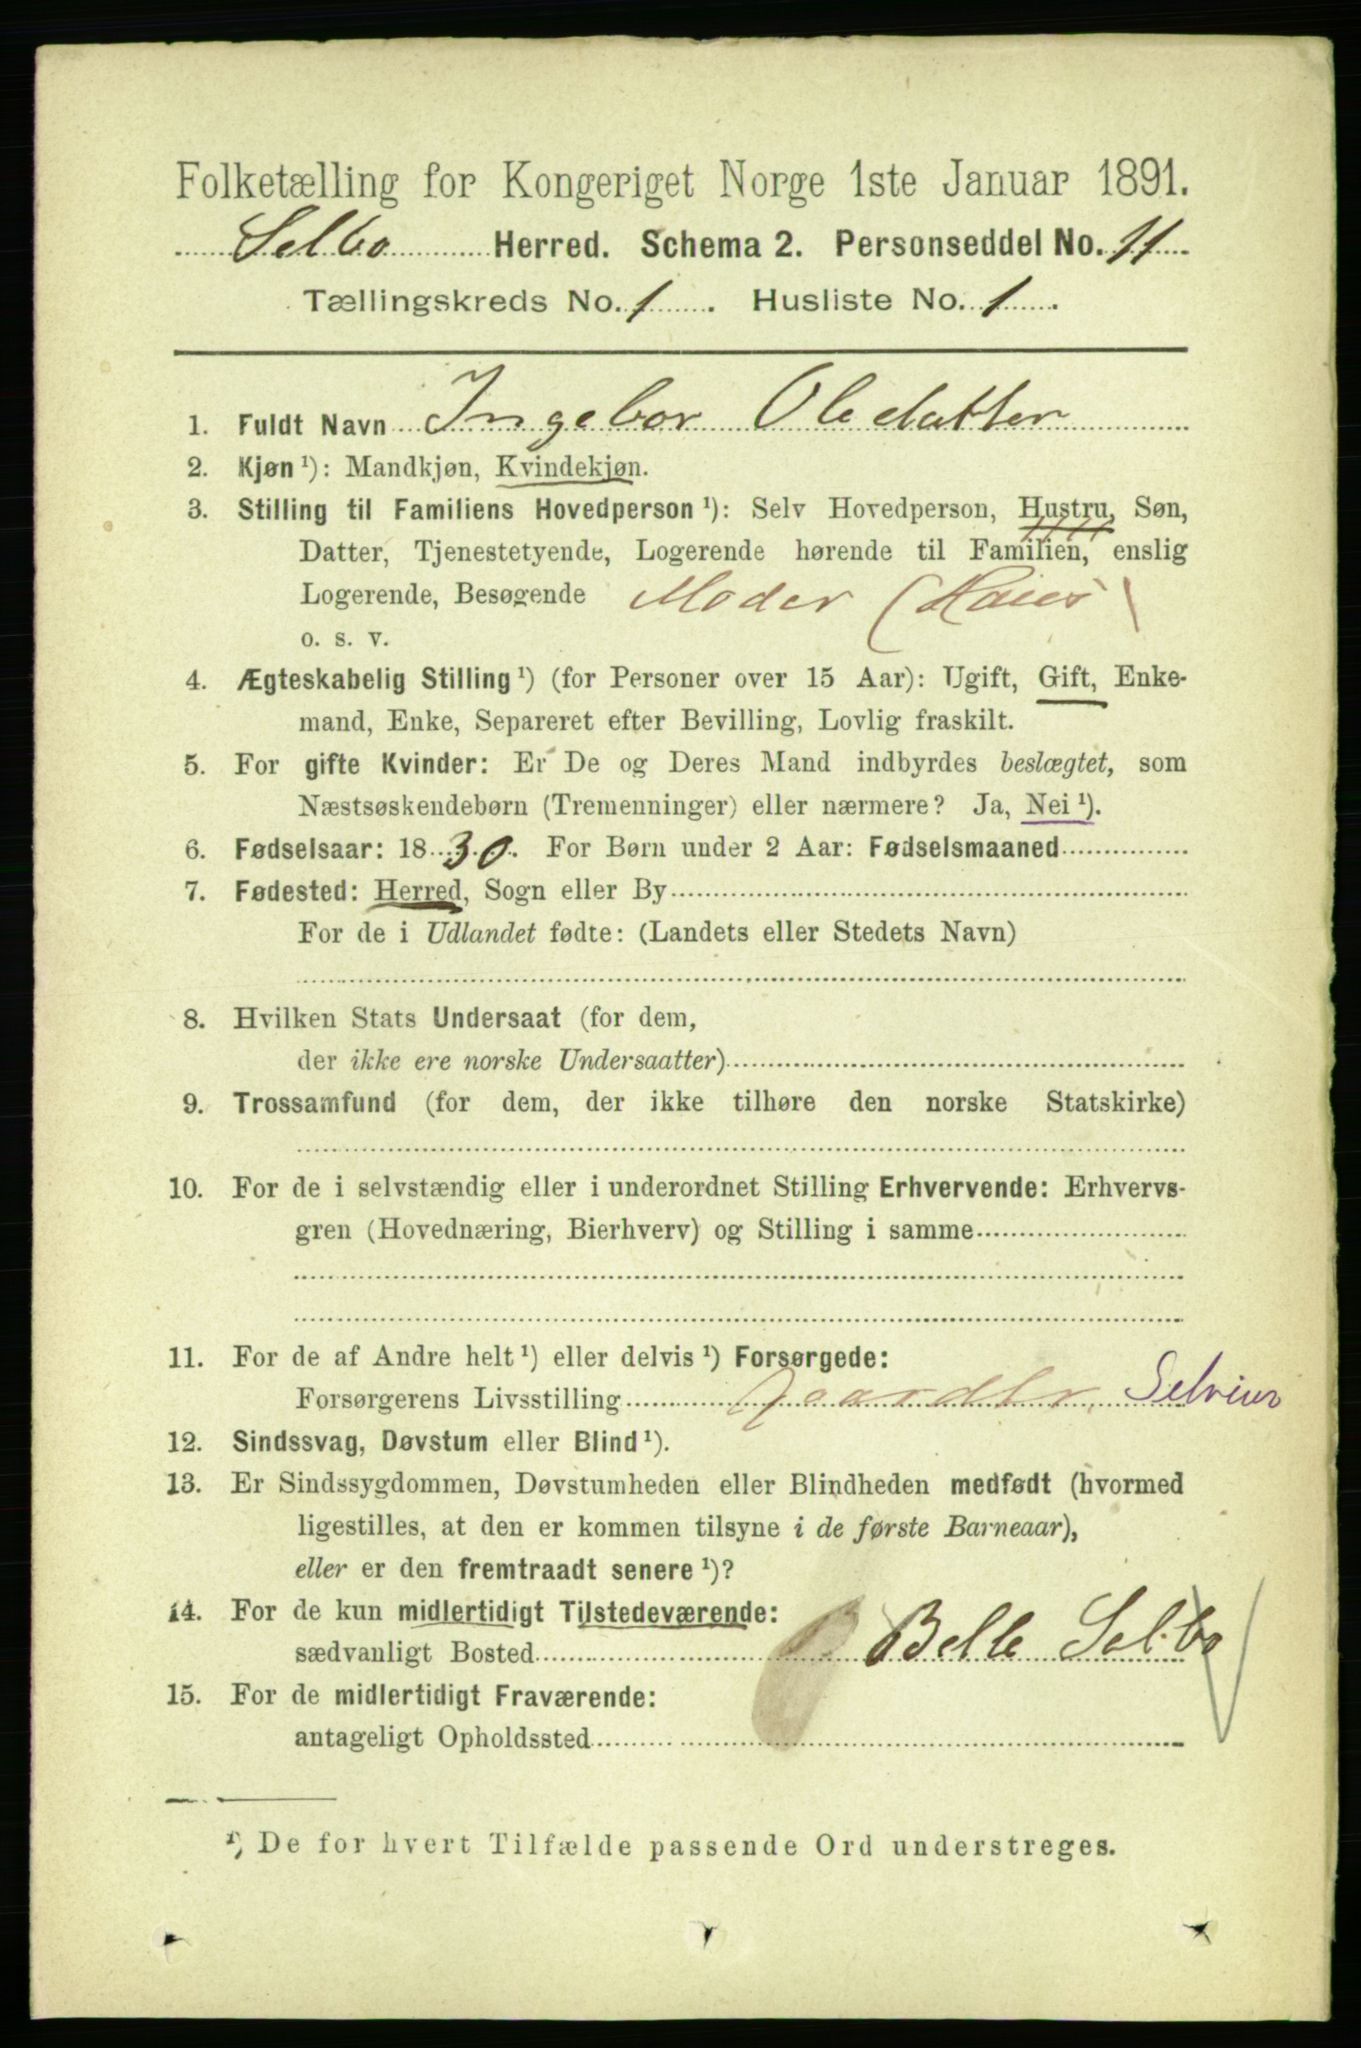 Folketælling for Kongeriget Norge 1ste Januar 1891.
Selbo Herred. Schema 2. Personseddel No. 11.
Tællingskreds No. 1. Husliste No. 1.
1. Fuldt Navn Ingebor Oledatter
2. Kjøn ¹): Mandkjøn, Kvindekjøn.
3. Stilling til Familiens Hovedperson ¹): Selv Hovedperson, Hustru, Søn,
Datter, Tjenestetyende, Logerende hørende til Familien, enslig
Logerende, Besøgende Moder
o. s. v.
4. Ægteskabelig Stilling ¹) (for Personer over 15 Aar): Ugift, Gift, Enke-
mand, Enke, Separeret efter Bevilling, Lovlig fraskilt.
5. For gifte Kvinder: Er De og Deres Mand indbyrdes beslægtet, som
Næstsøskendebørn (Tremenninger) eller nærmere? Ja, Nei ¹).
6. Fødselsaar: 1830. For Børn under 2 Aar: Fødselsmaaned
7. Fødested: Herred, Sogn eller By
For de i Udlandet fødte: (Landets eller Stedets Navn)
8. Hvilken Stats Undersaat (for dem,
der ikke ere norske Undersaatter)
9. Trossamfund (for dem, der ikke tilhøre den norske Statskirke)
10. For de i selvstændig eller i underordnet Stilling Erhvervende: Erhvervs-
gren (Hovednæring, Bierhverv) og Stilling i samme
11. For de af Andre helt ¹) eller delvis ¹) Forsørgede:
Forsørgerens Livsstilling Gaardbr. Selveier
12. Sindssvag, Døvstum eller Blind ¹).
13. Er Sindssygdommen, Døvstumheden eller Blindheden medfødt (hvormed
ligestilles, at den er kommen tilsyne i de første Barneaar),
eller er den fremtraadt senere ¹)?
14. For de kun midlertidigt Tilstedeværende:
sædvanligt Bosted Belle Selbo
15. For de midlertidigt Fraværende:
antageligt Opholdssted
¹) De for hvert Tilfælde passende Ord understreges.